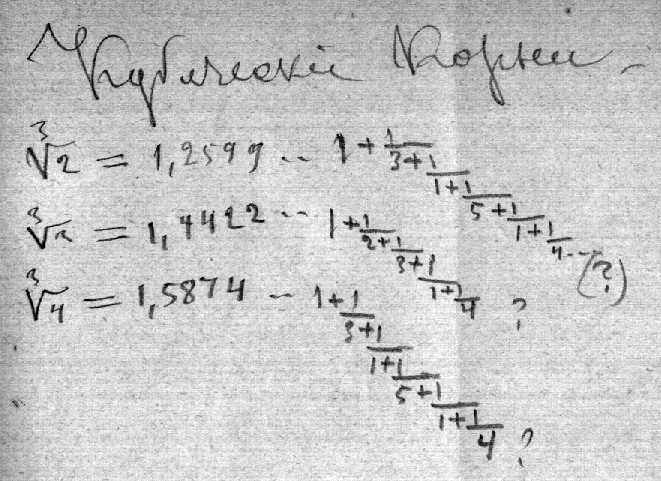 Кубическіе Корни
∛2 = 1,2599 .. 1 + 1/(3 + 1/(1 + 1/(5 + 1/(1 + 1/(4 ... (?)
∛3 = 1,4422 .. 1 + 1/(2 + 1/(3 + 1/(1 + 1/4 ?
∛4 = 1,5874 -- 1 + 1/(3 + 1/(1 + 1/(5 + 1/(1 + 1/4 ?